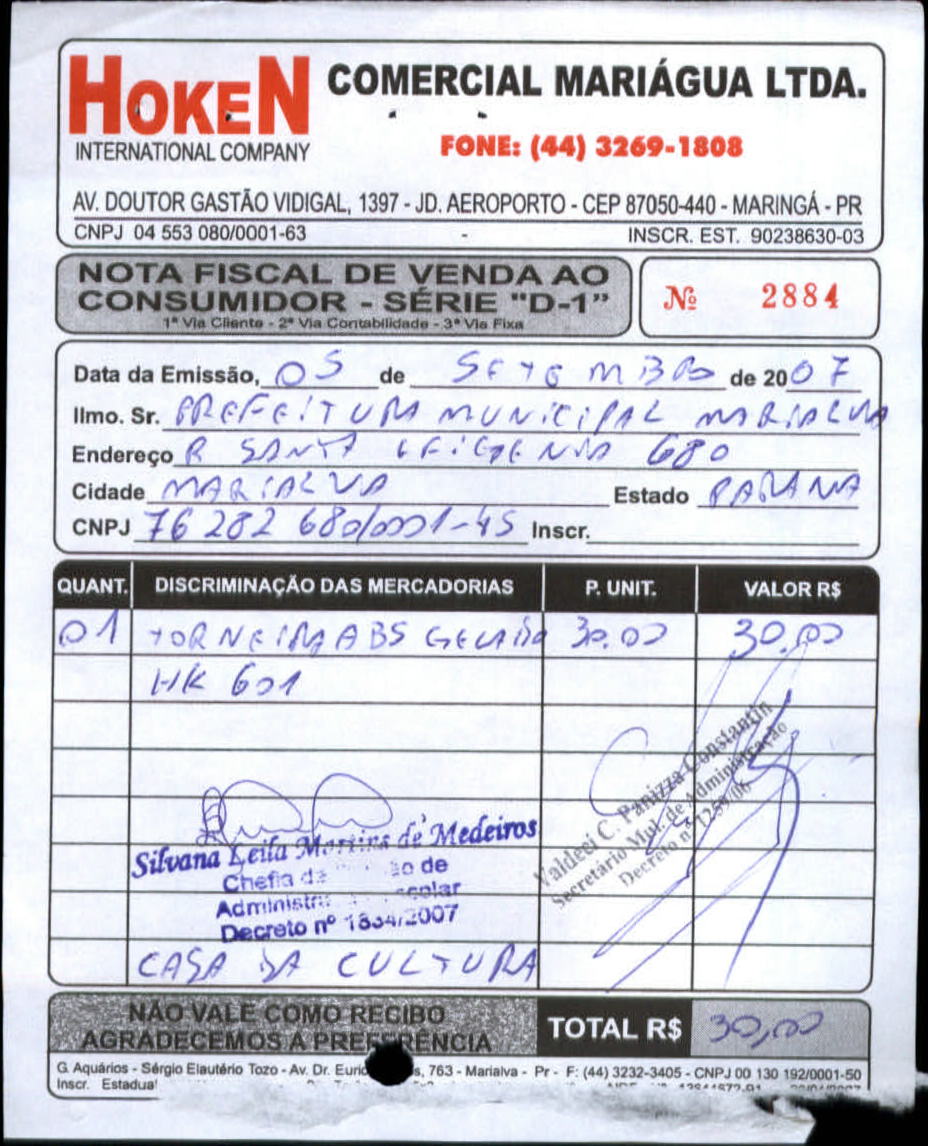 HOKEN
INTERNATIONAL COMPANY
COMERCIAL MARIÁGUA LTDA.
FONE: (44) 3269-1808
AV. DOUTOR GASTÃO VIDIGAL, 1397 - JD. AEROPORTO - CEP 87050-440 - MARINGÁ - PR
CNPJ 04 553 080/0001-63 INSCR. EST. 90238630-03
NOTA FISCAL DE VENDA AO
CONSUMIDOR - SÉRIE "D-1"
1ª Via Cliente - 2ª Via Contabilidade - 3ª Via Fixa
Nº 2884
Data da Emissão, 05 de SETEMBRO de 2007
Ilmo. Sr. PREFEITURA MUNICIPAL MARIALVA
Endereço R SANTA EFIGENIA 680
Cidade MARIALVA Estado PARANA
CNPJ 76 282 680/0001-45 Inscr.
QUANT. DISCRIMINAÇÃO DAS MERCADORIAS P. UNIT. VALOR R$
01 TORNEIRA ABS GELADA 30.00 30,00
HK 601
Valdeci C. Panizza Constantin
Secretário Mul. de Administração
Decreto nº
Silvana Leila Martins de Medeiros
Chefia de
Decreto nº 1834/2007
CASA DA CULTURA
NÃO VALE COMO RECIBO
AGRADECEMOS A PREFERÊNCIA
TOTAL R$ 30,00
G. Aquários - Sérgio Elautério Tozo - Av. Dr. 763 - Marialva - Pr - F: (44) 3232-3405 - CNPJ 00 130 192/0001-50
Inscr. Estadual